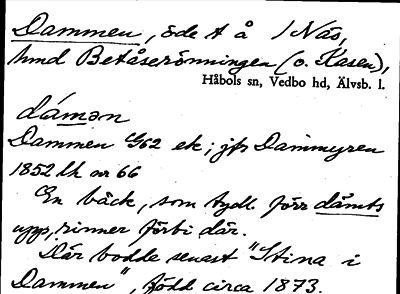 Dammen, öde t å 1 Näs,
hmd Betåserönningen (o. Kasen),
Håbols sn, Vedbo hd, Älvsb. l.
dámən
Dammen G62 ek; jfr Dammyren
1852 lh nr 66
En bäck, som tydl. förr dämts
upp, rinner förbi där.
Där bodde senast "Stina i
Dammen", född circa 1873.